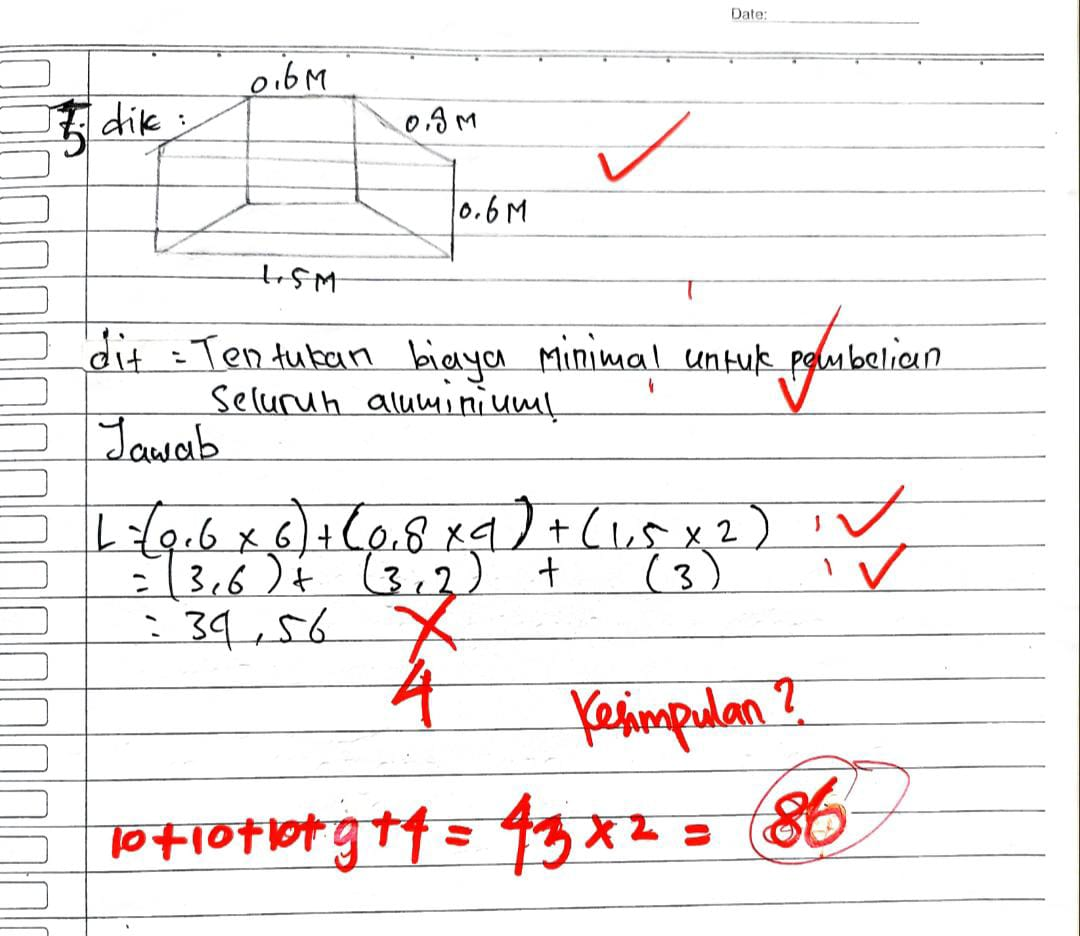 Date:
0.6M
5. dik :
0.8M
0.6M
1.5M
dit = Tentukan biaya Minimal untuk pembelian
Seluruh aluminium!
Jawab
L = (0.6 x 6) + (0,8 x 4) + (1,5 x 2)
= (3,6) + (3,2) + (3)
= 39,56
4
Kesimpulan?
10+10+10+9+4 = 43 x 2 = 86